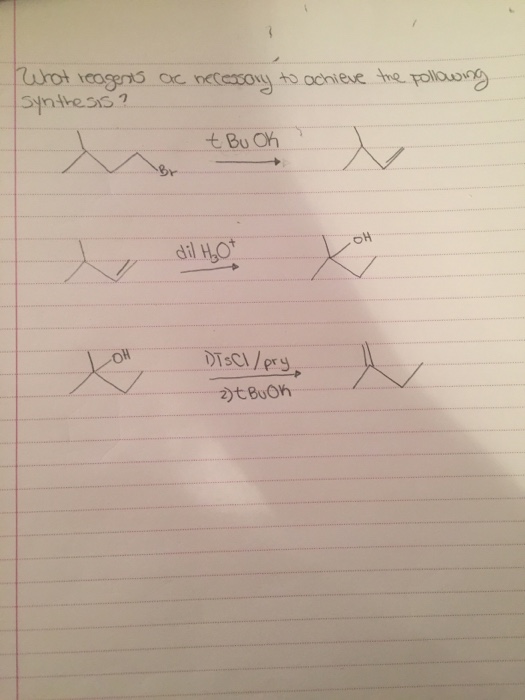 What reagents ac necessary to achieve the following
synthesis?
t BuOK
Br
dil H₃O⁺
OH
OH
1) TsCl/pry
2) t BuOK